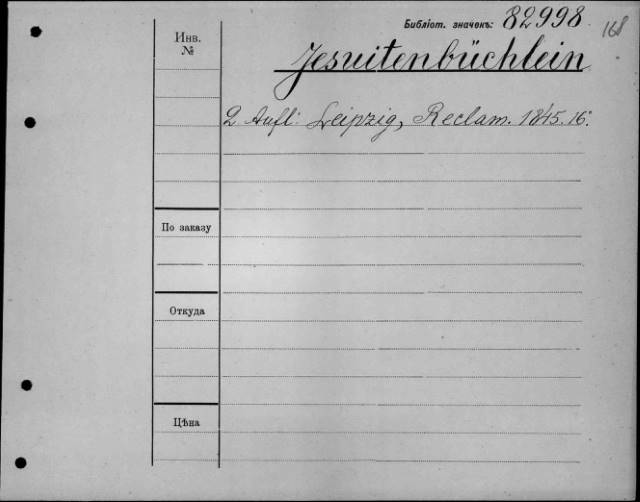 Библіот. значекъ: 82998
168
Инв.
№
Jesuitenbüchlein
2 Aufl: Leipzig, Reclam. 1845. 16°.
По заказу
Откуда
Цѣна